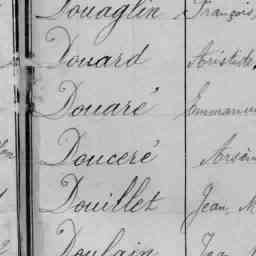 Douaglin François
Douard Aristide
Douaré Emmanuel
Douceré
Douillet Jean, M
Doulain